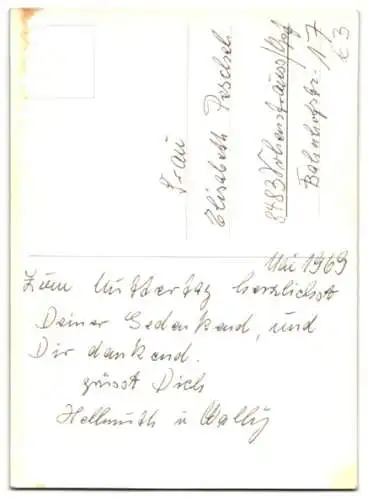 Mai 1969
Zum Muttertag herzlichst
Deiner Gedenkend, und
Dir dankend.
grüsst Dich
Hellmuth u Wally
Frau
Elisabeth
8483 Vohenstrauss/Opf
Bahnhofstr. 17